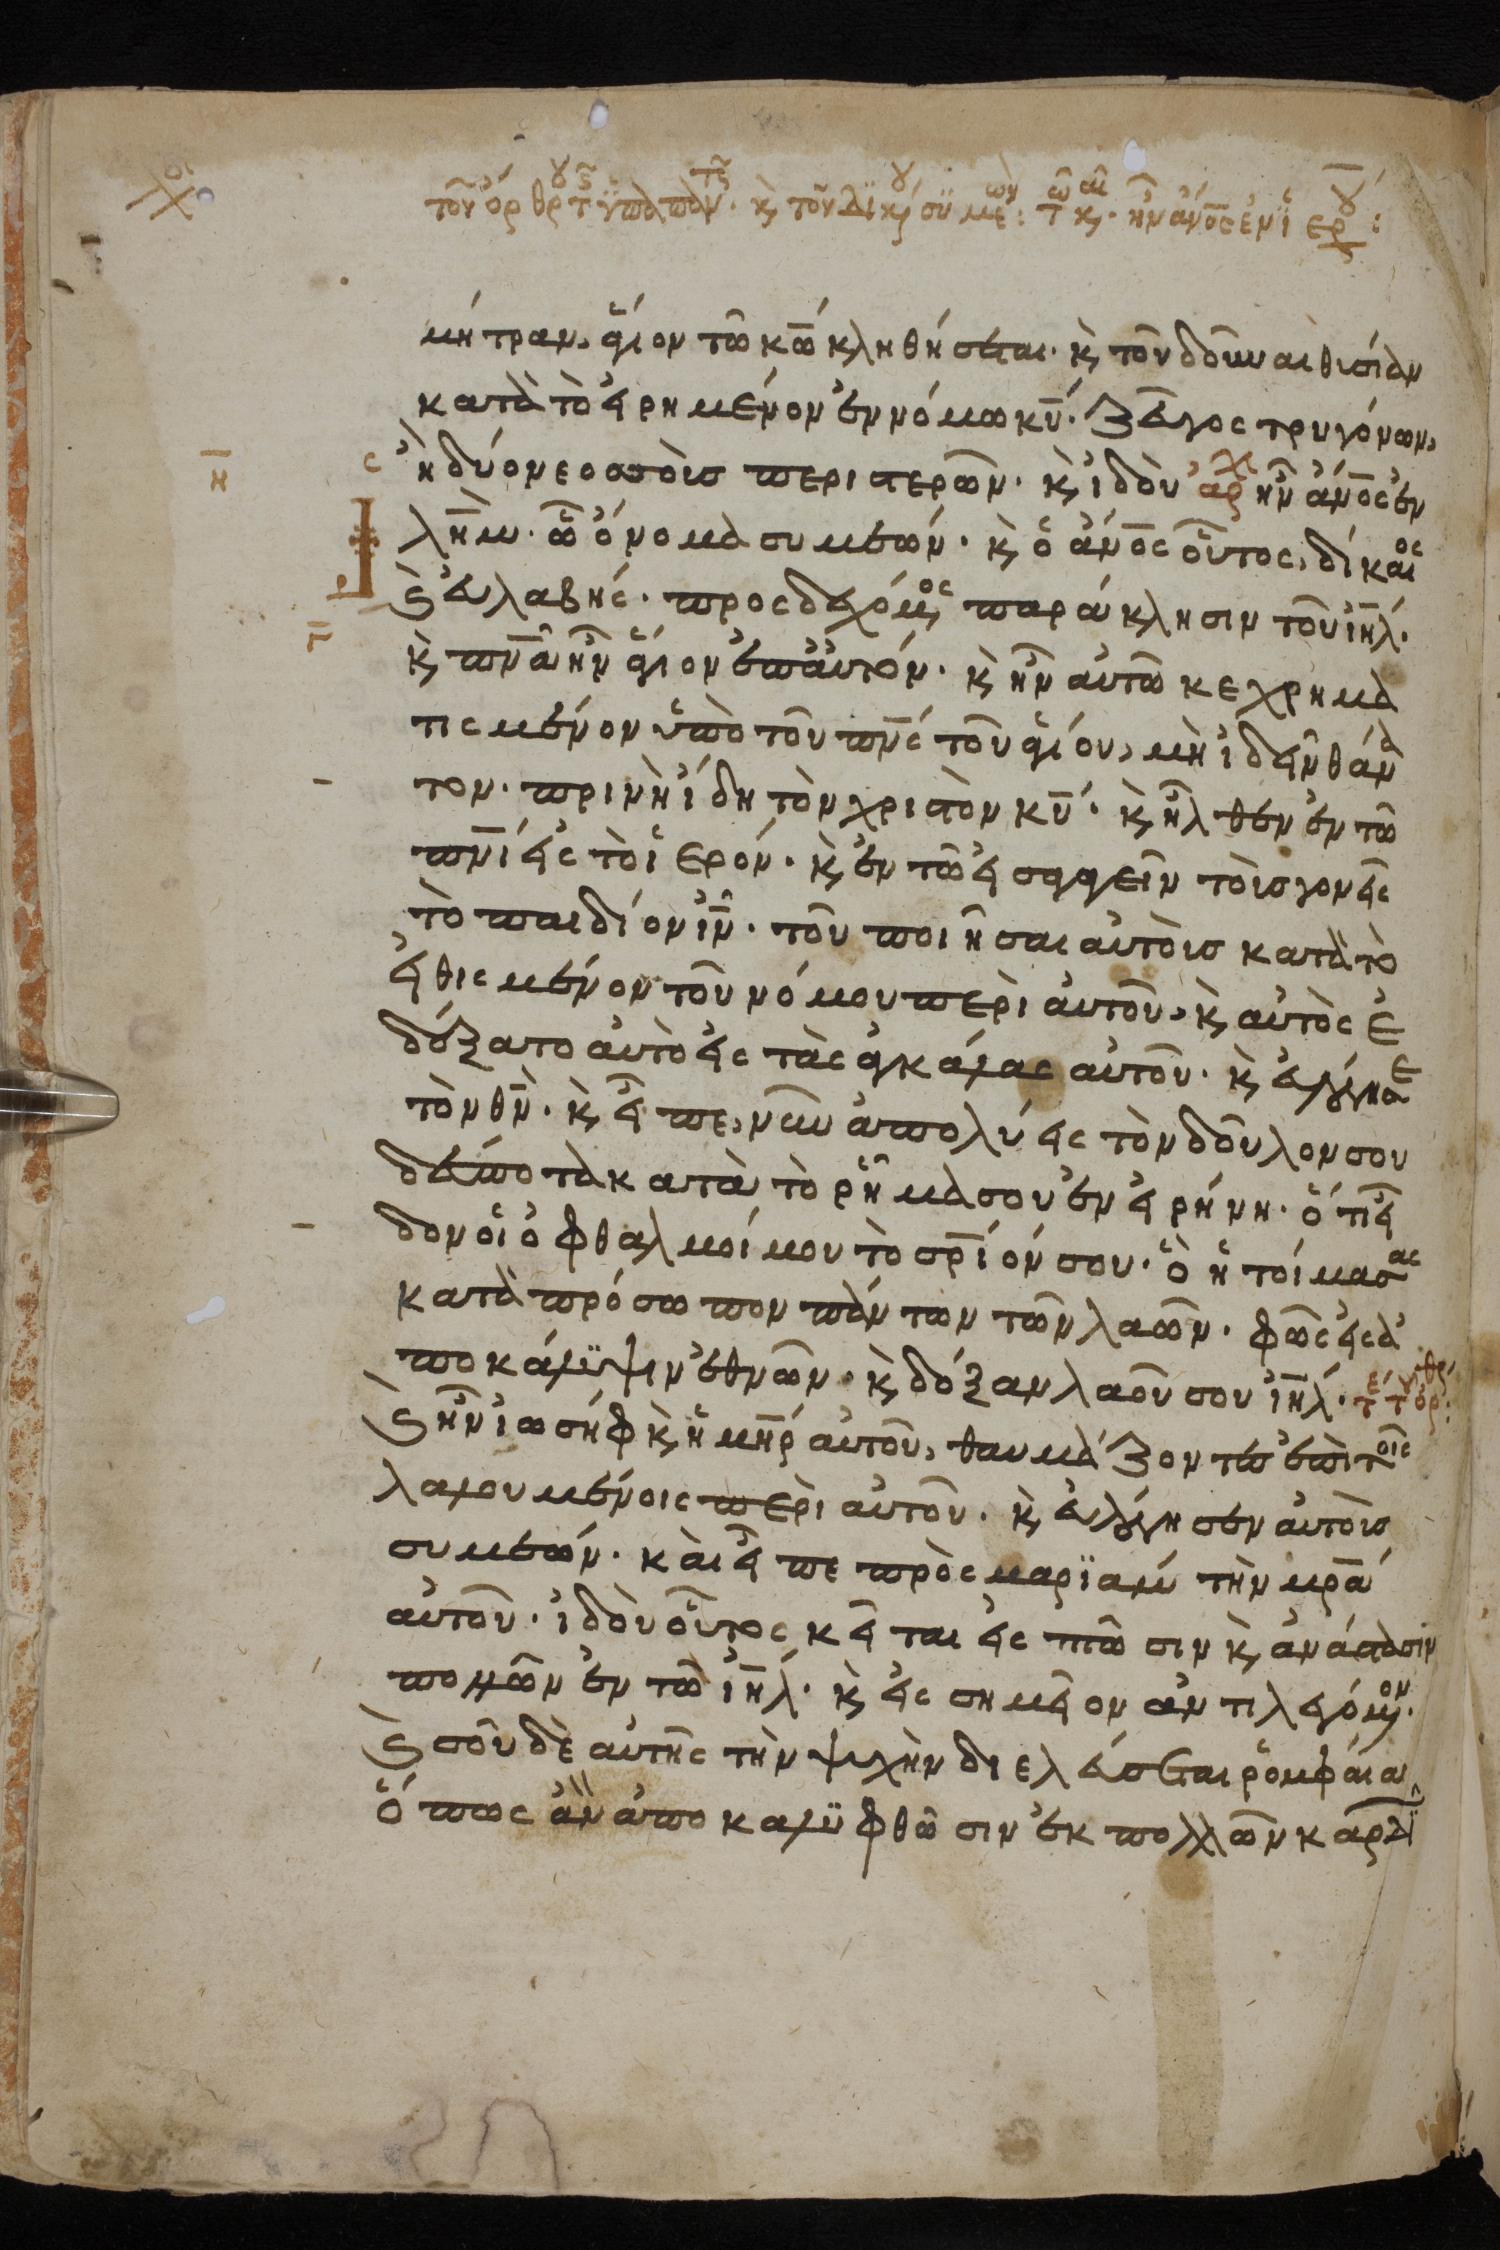 μήτραν, ἅγιον τῶ κω κληθήσεται· κ τοῦ δοῦναι θυσίαν
κατὰ τὸ εἰρημένον ἐν νόμω κυ· ζεῦγος τρυγόνων,
ἢ δύο νεοσσοὺς περιστερῶν· κ ἰδοὺ ἀρχ ἦν ἄνος ἐν
ιλημ· ὧ ὄνομα συμεών· κ ὁ ἄνος οὗτος, δίκαιος
κ εὐλαβής· προσδεχόμενος παράκλησιν τοῦ ιηλ·
κ πνα ἦν ἅγιον ἐπ αὐτόν· κ ἦν αὐτῶ κεχρημα
τισμένον ὑπὸ τοῦ πνς τοῦ ἁγίου, μὴ ἰδεῖν θάνα
τον· πρινὴ ἴδη τὸν χριστὸν κυ· κ ἦλθεν ἐν τῶ
πνι εἰς τὸ ἱερόν· κ ἐν τῶ εἰσαγαγεῖν τοὺς γονεῖς
τὸ παιδίον ιν· τοῦ ποιῆσαι αὐτοὺς κατὰ τὸ
εἰθισμένον τοῦ νόμου περὶ αὐτοῦ, κ αὐτὸς ἐ
δέξατο αὐτὸ εἰς τὰς ἀγκάλας αὐτοῦ· κ εὐλόγησε
τὸν θν· κ εἶπε, νῦν ἀπολύεις τὸν δοῦλον σου
δέσποτα κατὰ τὸ ρῆμα σου ἐν εἰρήνη· ὅτι εἶ
δον οἱ ὀφθαλμοί μου τὸ σριόν σου· ὃ ἡτοίμασας
κατὰ πρόσωπον πάντων τῶν λαῶν· φῶς εἰς ἀ
ποκάλυψιν ἐθνῶν· κ δόξαν λαοῦ σου ιηλ·
κ ἦν ἰωσὴφ κ ἡ μηρ αὐτοῦ, θαυμάζοντες ἐπὶ τοῖς
λαλουμένοις περὶ αὐτοῦ· κ εὐλόγησεν αὐτοὺς
συμεών· καὶ εἶπε πρὸς μαριὰμ τὴν μρα
αὐτοῦ· ἰδοὺ οὗτος κεῖται εἰς πτῶσιν κ ἀνάστασιν
πολλῶν ἐν τῶ ιηλ· κ εἰς σημεῖον ἀντιλεγόμενον·
κ σοῦ δὲ αὐτῆς τὴν ψυχὴν διελεύσεται ρομφαία
ὅπως ἂν ἀποκαλυφθῶσιν ἐκ πολλῶν καρδι